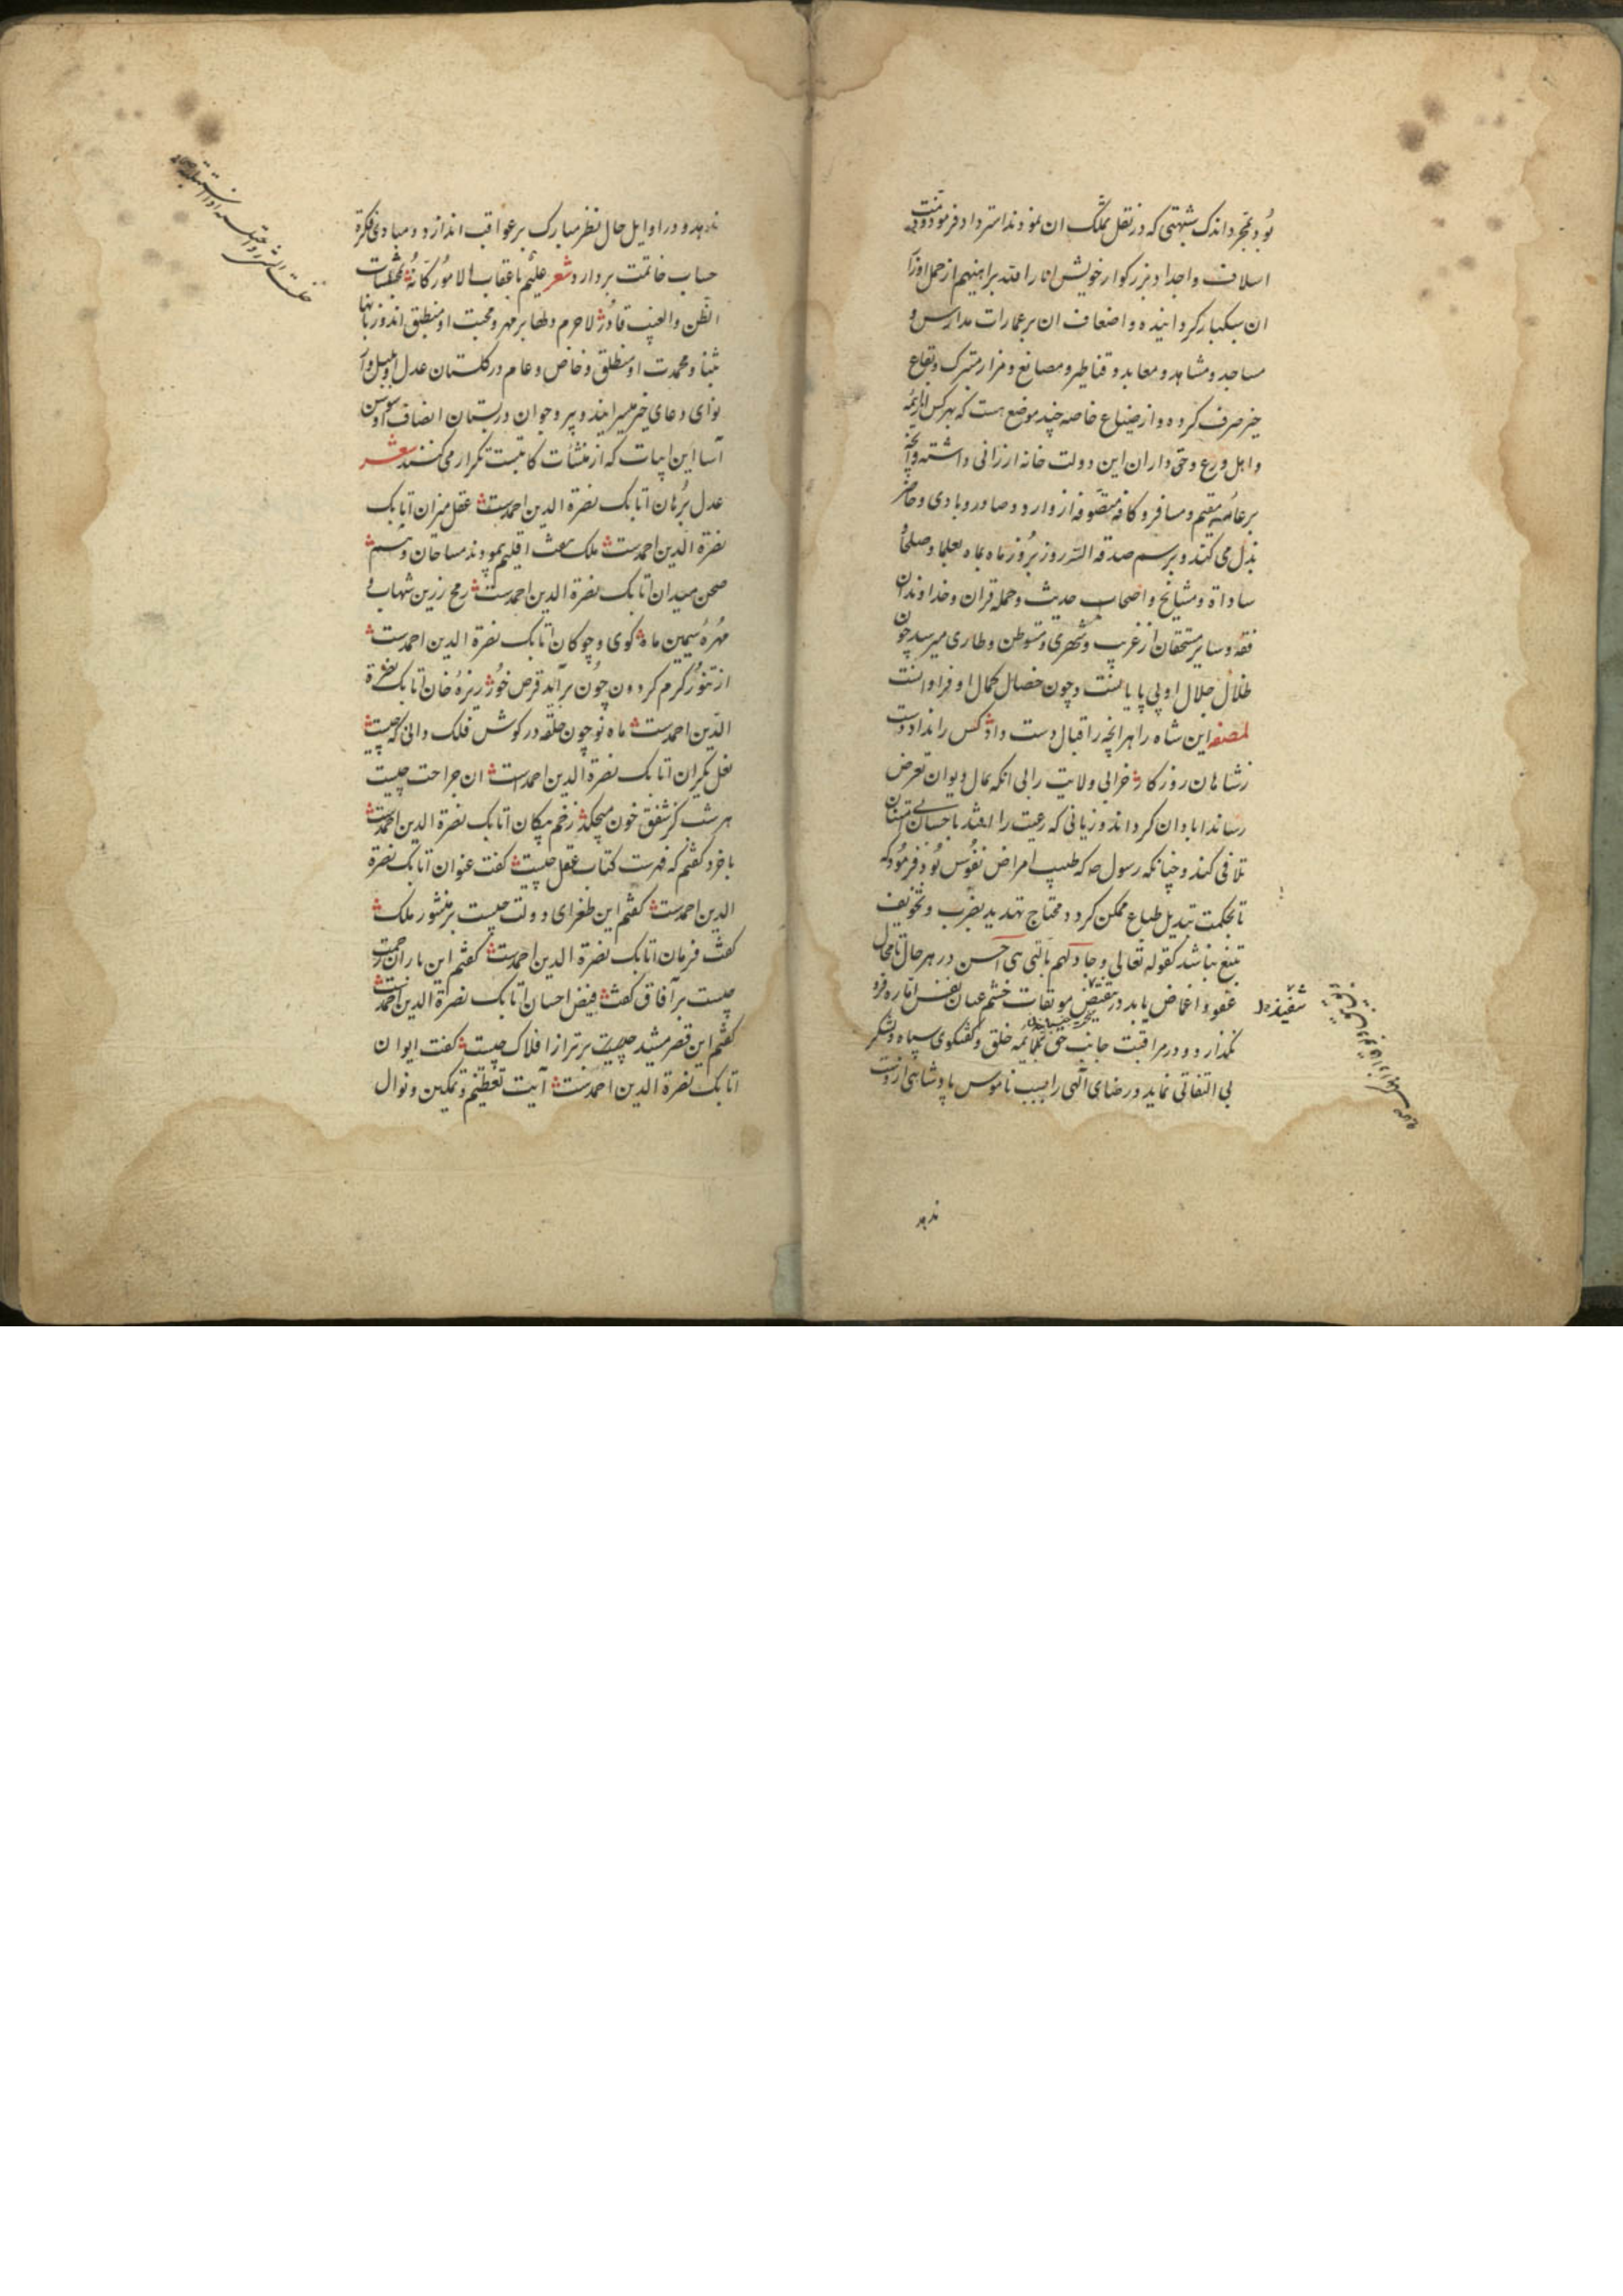 بود بمجرد اندک شبهتی که در نقل تملک ان نمودند استرداد فرمود و ذمت
اسلاف و اجداد بزرکوار خویش انار الله براهینهم از حمل اوزار
ان سبکبار کردانیده و اضعاف ان بر عمارات مدارس و
مساجد و مشاهد و معابد و قناطر و مصانع و مزار متبرک و بقاع
خیر صرف کرده و از ضیاع خاصه چند موضع هست که بهر کس از ایمه
و اهل ورع و حق داران این دولت خانه ارزانی داشته و انچه
بر عامه مقیم و مسافر و کافه متصوفه از وارد و صادر و بادی و حاضر
بذل می کند و برسم صدقة السر روز بروز ماه بماه بعلما و صلحا و
سادات و مشایخ و اصحاب حدیث و حمله قران و خداوندان
فقه و سایر مستحقان از غریب و شهری و متوطن و طاری میرسد چون
ظلال جلال او بی پایانست و چون خصایل کمال او فراوانست
لمصنفه این شاه را هر انچه ز اقبال دست داد کس را نداد دست
ز شاهان روزکار خرابی ولایت را بی انکه بمال دیوان تعرض
رساند ابادان کرداند و زیانی که رعیت را افتد باحسان بی امتنان
تلافی کند و چنانکه رسول که طبیب امراض نفوس بود فرمود که
تا بحکمت تبدیل طباع ممکن کردد محتاج تهدید بضرب و تخویف
بتیغ نباشد کقوله تعالی و جادلهم بالتی هی احسن در هر حال تا مجال
عفو و اغماض یابد در تنفیذ موبقات خشم عنان نفس اماره فرو
نکذارد و در مراقبت جانب حق بملایمه خلق و کفتکوی سپاه و لشکر
بی التفاتی نماید و رضای الهی را بسبب ناموس پادشاهی از دست
ندهد
ندهد و در اوایل حال نظر مبارک بر عواقب اندازد و مبادی فکرة
حساب خاتمت بردارد شعر علیم باعقاب الامور کانه بمختلسات
الظن و الغیب قادر لاجرم دلها بر مهر و محبت او منطبق اند و زبانها
بثنا و محمدت او منطلق و خاص و عام در کلستان عدل او بلبل وار
نوای دعای خیر میسرایند و پیر و جوان در بستان انصاف او سوسن
آسا این ابیات که از منشآت کاتبست تکرار می کنند شعر
عدل برهان اتابک نصرة الدین احمدست عقل میزان اتابک
نصرة الدین احمدست ملک هفت اقلیم پیمودند مساحان وهم
صحن میدان اتابک نصرة الدین احمدست رمح زرین شهاب و
مهره سیمین ماه کوی و چوکان اتابک نصرة الدین احمدست
از تنور کرم کردون چون برآید قرص خور ریزه خان اتابک نصرة
الدین احمدست ماه نو چون حلقه در کوش فلک دانی که چیست
نعل یکران اتابک نصرة الدین احمدست ان جراحت چیست
هر شب کز شفق خون میچکد زخم پیکان اتابک نصرة الدین احمدست
با خرد کفتم که فهرست کتاب عقل چیست کفت عنوان اتابک نصرة
الدین احمدست کفتم این طغرای دولت چیست بر منشور ملک
کفت فرمان اتابک نصرة الدین احمدست کفتم این باران رحمت
چیست بر آفاق کفت فیض احسان اتابک نصرة الدین احمدست
کفتم این قصر مشید چیست برتر از افلاک چیست کفت ایوان
اتابک نصرة الدین احمدست آیت تعظیم و تمکین و نوال